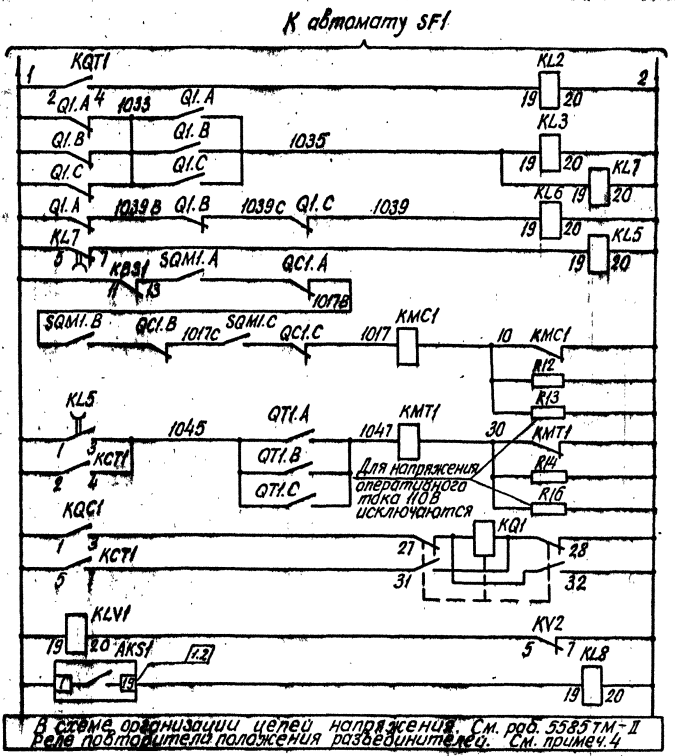 К автомату SF1
1 KQT1 KL2 2
2 4 19 20
Q1.A 1033 Q1.A KL3
Q1.B Q1.B 1035 19 20
Q1.C Q1.C KL7
19 20
Q1.A 1039B Q1.B 1039C Q1.C 1039 KL6
19 20
KL7 KL5
5 7 19 20
KBS1 SQM1.A QC1.A
11 13 1017B
SQM1.B QC1.B 1017C SQM1.C QC1.C 1017 KMC1 10 KMC1
R12
R13
KL5 1045 QT1.A 1047 KMT1 30 KMT1
1 3
KCT1 QT1.B R14
2 4
QT1.C R16
Для напряжения
оперативного
тока 110В
исключаются
KQC1 KQ1
1 3 27 28
KCT1
5 7 31 32
KLV1 KV2
19 20 5 7
AKS1 1.2 KL8
7 19 19 20
В схеме организации цепей напряжения. См. раб. 5585тм-II
Реле повторители положения разъединителей. См. примеч. 4